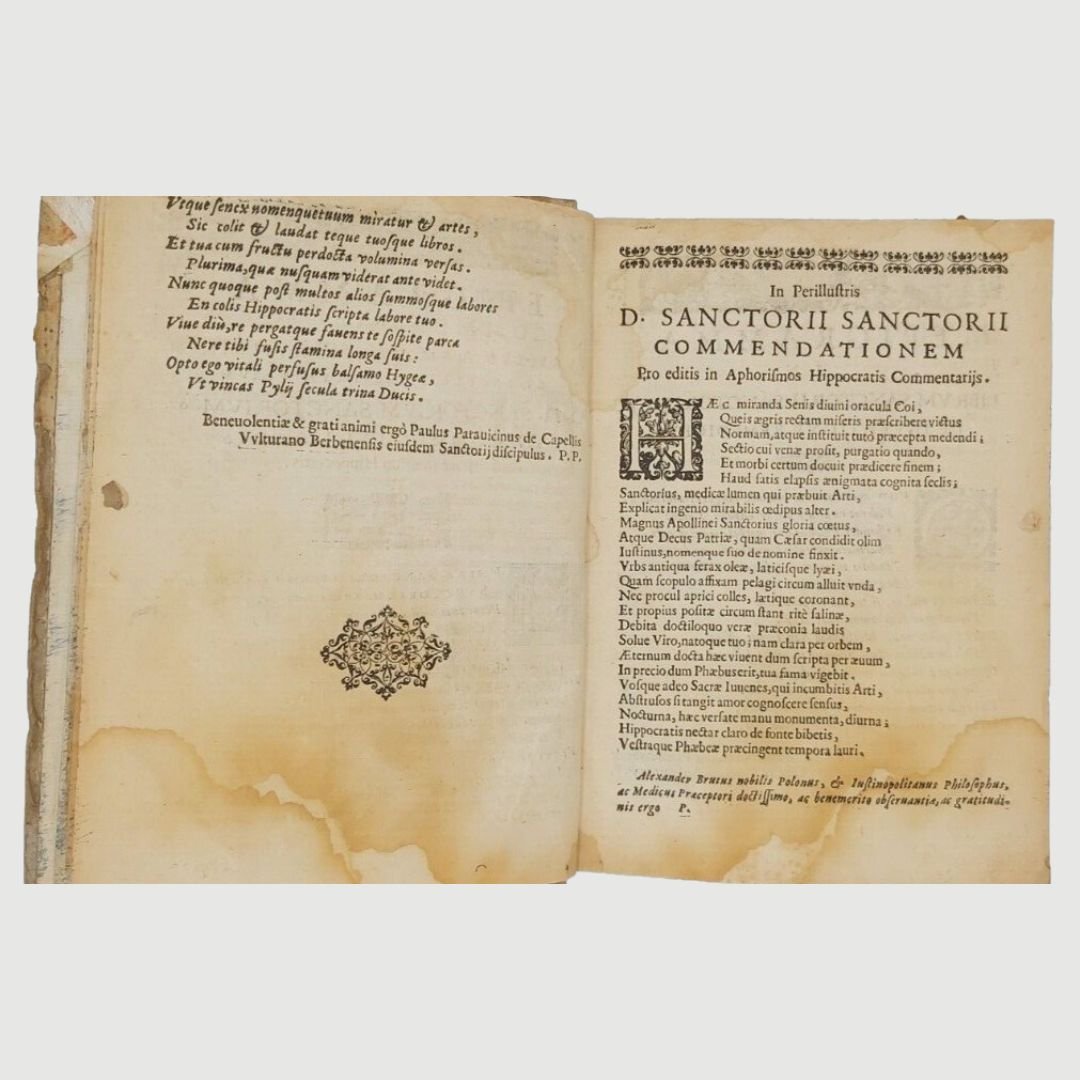 Vtque senex nomenque tuum miratur & artes,
Sic colit & laudat teque tuosque libros.
Et tua cum fructu perdocta volumina versas.
Plurima, quæ nusquam viderat ante videt.
Nunc quoque post multos alios summosque labores
En colis Hippocratis scripta labore tuo.
Viue diù, re pergatque fauens te sospite parca
Nere tibi fusis stamina longa suis:
Opto ego vitali perfusus balsamo Hygeæ,
Vt vincas Pylij secula trina Ducis.
Beneuolentiæ & grati animi ergò Paulus Parauicinus de Capellis
Vvlturano Berbenensis eiusdem Sanctorij discipulus. P. P.
In Perillustris
D. SANCTORII SANCTORII
COMMENDATIONEM
Pro editis in Aphorismos Hippocratis Commentarijs.
HÆC miranda Senis diuini oracula Coi,
Queis ægris rectam miseris præscribere victus
Normam, atque instituit tutò præcepta medendi;
Sectio cui venæ prosit, purgatio quando,
Et morbi certum docuit prædicere finem;
Haud satis elapsis ænigmata cognita seclis;
Sanctorius, medicæ lumen qui præbuit Arti,
Explicat ingenio mirabilis œdipus alter.
Magnus Apollinei Sanctorius gloria cœtus,
Atque Decus Patriæ, quam Cæsar condidit olim
Iustinus, nomenque suo de nomine finxit.
Vrbs antiqua ferax oleæ, laticisque lyæi,
Quam scopulo affixam pelagi circum alluit vnda,
Nec procul aprici colles, lætique coronant,
Et propius positæ circum stant ritè salinæ,
Debita doctiloquo veræ præconia laudis
Solue Viro, natoque tuo; nam clara per orbem,
Æternum docta hæc viuent dum scripta per æuum,
In precio dum Phæbus erit, tua fama vigebit.
Vosque adeo Sacræ Iuuenes, qui incumbitis Arti,
Abstrusos si tangit amor cognoscere sensus,
Nocturna, hæc versate manu monumenta, diurna;
Hippocratis nectar claro de fonte bibetis,
Vestraque Phæbeæ præcingent tempora lauri.
Alexander Brutus nobilis Polonus, & Iustinopolitanus Philosophus,
ac Medicus Præceptori doctissimo, ac benemerito obseruantiæ, ac gratitudi-
nis ergo P.